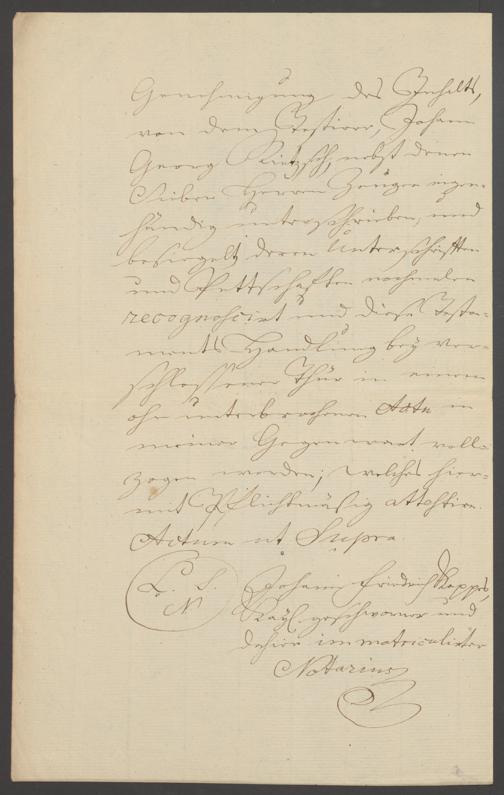 Genehmigung des Inhalts,
von dem Testirer, Johann
Georg Rietzsch, nebst denen
Sieben Herren Zeugen eigen-
händig unterschrieben, und
besiegelt deren Unterschrifften
und Pettschafften nochmalen
recognoscirt und diese Testa-
ments Handlung bey ver-
schlossener Thür in einem
ohn unterbrochenen Actu in
meiner Gegenwart voll-
zogen worden; welches hier-
mit Pflichtmäßig attestire.
Actum ut Supra.
L. S.
N
Johann Friedrich
Kayl. geschworner und
dahier immatriculirter
Notarius